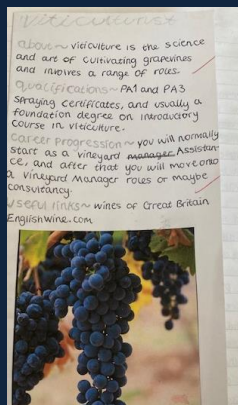 viticulturist
about~ viticulture is the science
and art of cultivating grapevines
and involves a range of roles.
qualifications~ PA1 and PA3
spraying certificates, and usually a
foundation degree on introductory
course in viticulture.
career progression~ you will normally
start as a vineyard manager Assistan-
ce, and after that you will move onto
a vineyard Manager roles or maybe
consultancy.
useful links~ wines of Great Britain
EnglishWine.com